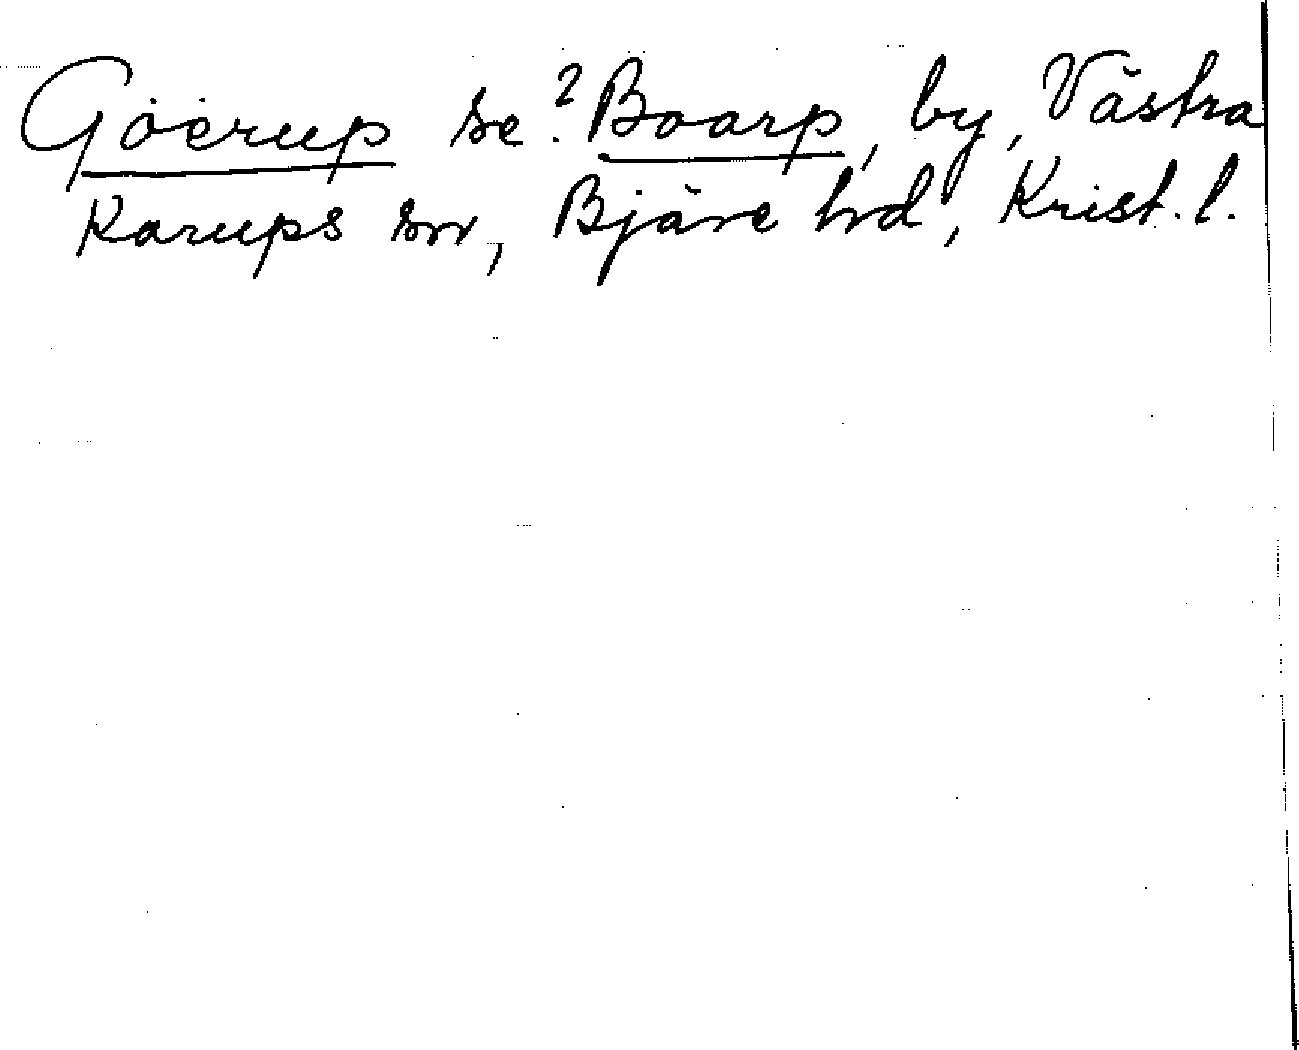 Göerup se ? Boarp, by, Västra
Karups sn, Bjäre hd, Krist. l.